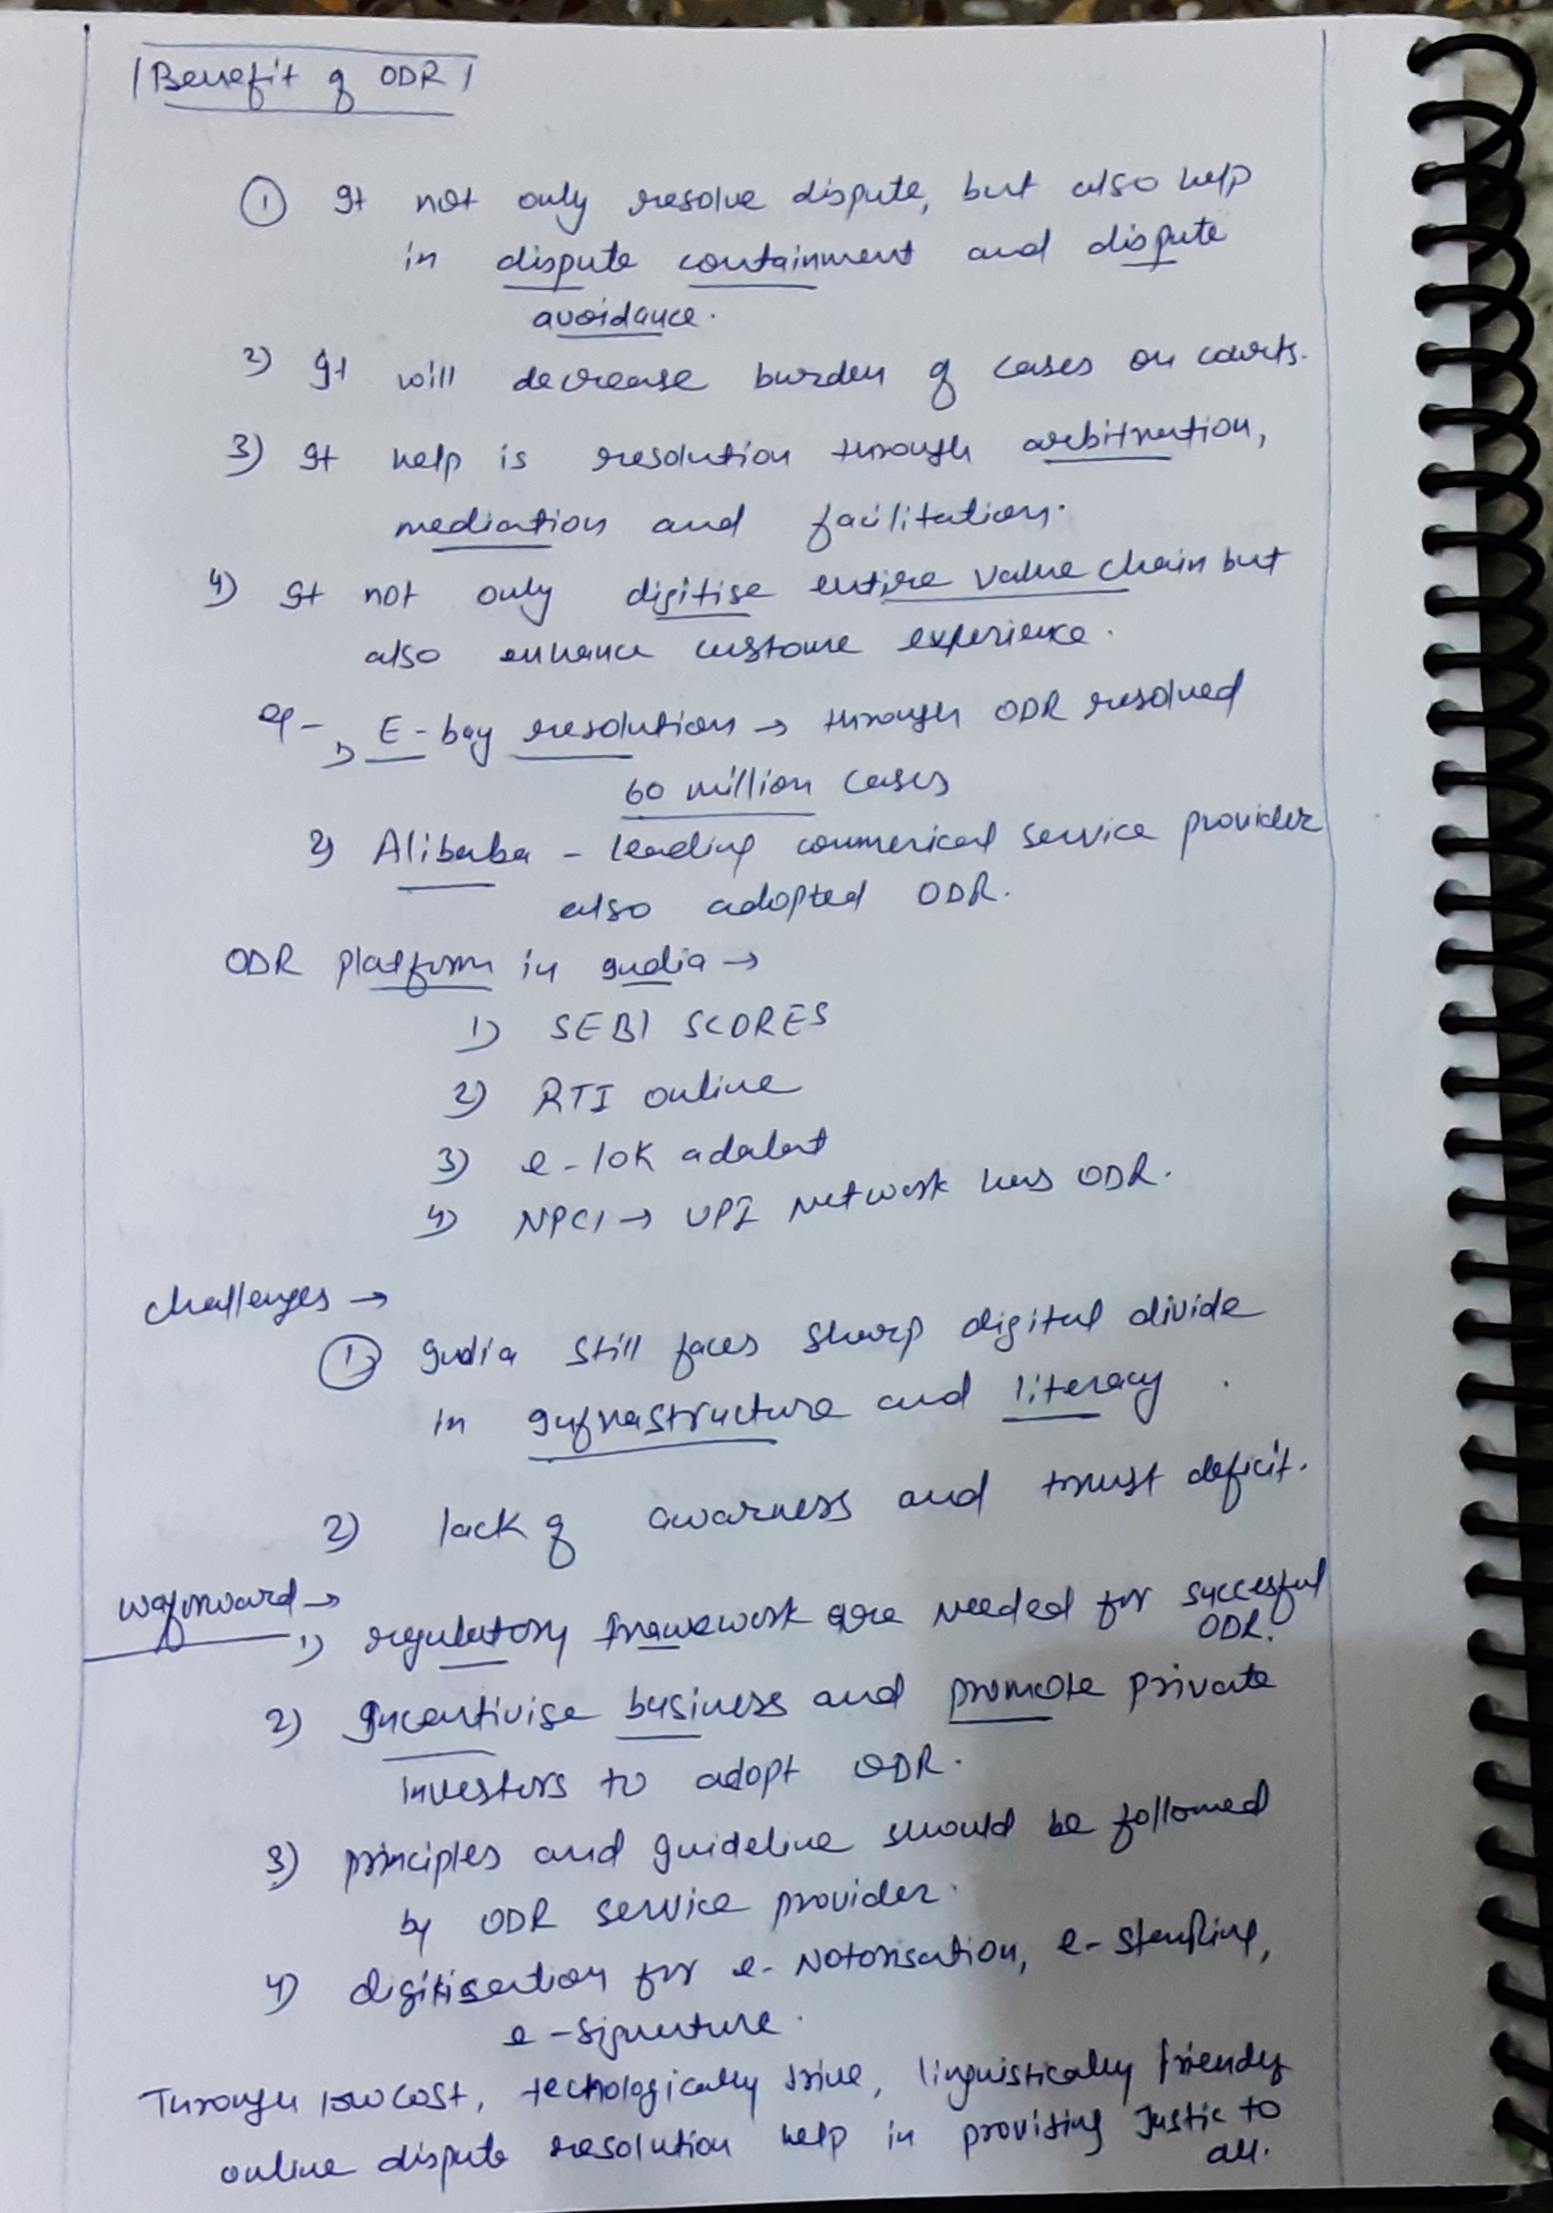 Benefit of ODR
① It not only resolve dispute, but also help
in dispute containment and dispute
avoidance.
2) It will decrease burden of cases on courts.
3) It help is resolution through arbitration,
mediation and facilitation.
4) It not only digitise entire value chain but
also enhance custome experience.
eg - 1) E-bay resolution → through ODR resolved
60 million cases
2) Alibaba - leading commerical service provider
also adopted ODR.
ODR platform in India →
1) SEBI SCORES
2) RTI online
3) e-lok adalat
4) NPCI → UPI Network has ODR.
challenges →
① India still faces sharp digital divide
in Infrastructure and literacy.
2) lack of awarness and trust deficit.
wayforward →
1) regulatory framework are needed for succesful
ODR.
2) Incentivise business and promote private
investors to adopt ODR.
3) principles and guideline should be followed
by ODR service provider.
4) digitisation for e-Notorisation, e-stamping,
e-signature.
Through low cost, technologically, linguistically friendly
online dispute resolution help in providing Justic to
all.